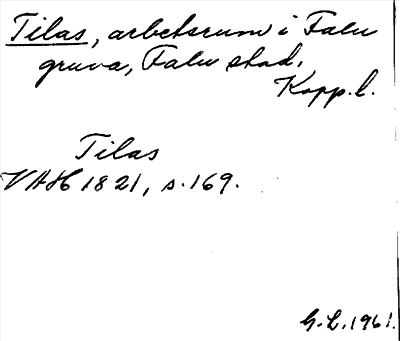 Tilas, arbetsrum i Falu
gruva, Falu stad.
Kopp. l.
Tilas
VAH 1821, s. 169.
G. L. 1961.